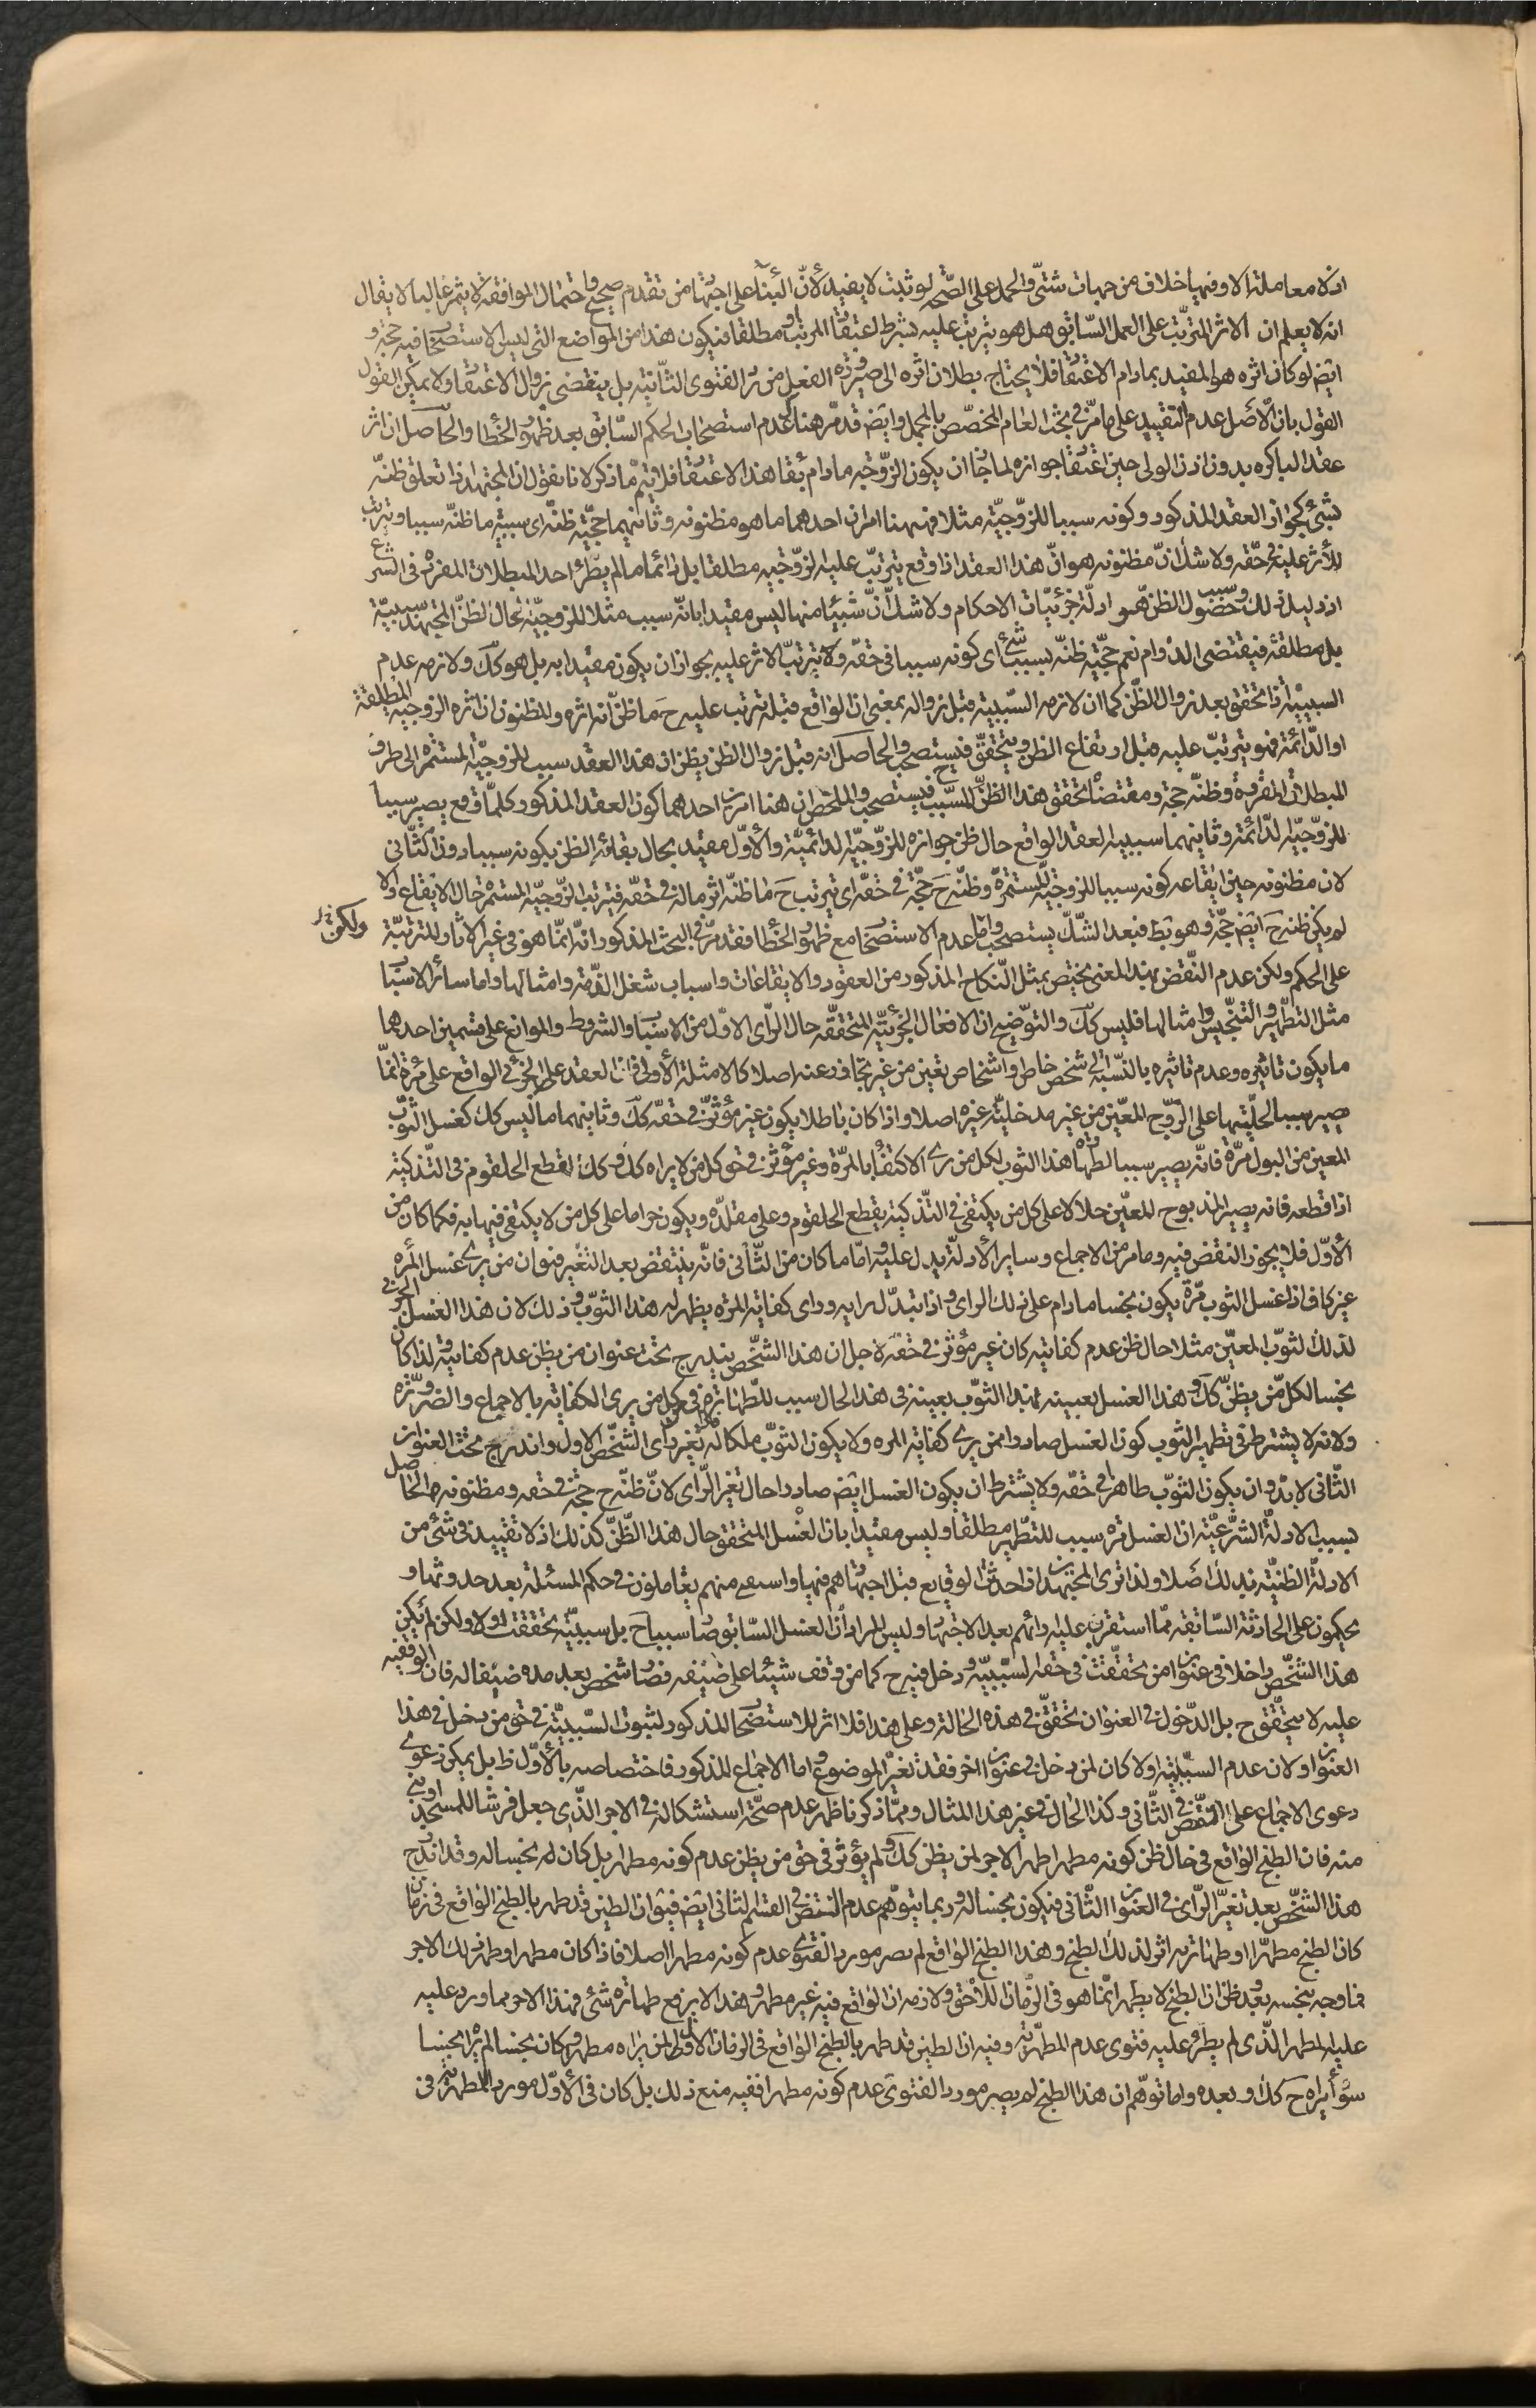 اذ لا معاملة الا وفيها خلاف من جهات شتى والحمل على الصحة لو ثبت لا يفيد لأن البناء على اجتهاد من تقدم صحيح واحتمال الموافقة لا يثمر غالبا لا يقال
انه لا يعلم ان الاثر المترتب على العمل السابق هل هو يترتب عليه بشرط اعتقاد المرتب او مطلقا فيكون هذا من المواضع التي ليس الاستصحاب فيه حجة و
ايض لو كان اثره هو المفيد بمادام الاعتقاد فلا يحتاج بطلان اثره الى صيرورة الفعل من الفتوى الثانية بل ينقضي بزوال الاعتقاد ولا يمكن القول
القول بان الاصل عدم التقييد على ما مر في بحث العام المخصص بالمجمل وايض قد مر هناك عدم استصحاب الحكم السابق بعد ظهور الخطا والحاصل ان اثر
عقد الباكرة بدون اذن الولي حين اعتقاد جوازه لما جاز ان يكون الزوجية مادام بقاء هذا الاعتقاد فلا يتم ما ذكر لانا نقول ان المجتهد اذا تعلق ظنه
بشئ كجواز العقد المذكور وكونه سببا للزوجية مثلا فههنا امران احدهما ما هو مظنونه وثانيهما حجية ظنه اى سببية ما ظنه سببا وترتب
الأثر عليه في حقه ولا شك ان مظنونه هو ان هذا العقد اذا وقع يترتب عليه الزوجية مطلقا بل دائما ما لم يطرء احد المبطلات المقررة في الشرع
اذ دليل ذلك وسبب حصول الظن هو ادلة جزئيات الاحكام ولا شك ان شيئا منها ليس مقيدا بانه سبب مثلا للزوجية بحال الظن المجتهد بسببية
بل مطلقة فيقتضى الدوام نعم حجية ظنه بسببية شئ اى كونه سببا في حقه ولا يترتب الاثر عليه يجوز ان يكون مقيدا به بل هو كك ولازمه عدم
السببية اذا تحقق بعد زوال الظن كما ان لازمه السببية قبل زواله بمعنى ان الواقع قبله ترتب عليه ح ما ظن انه اثره والمظنون ان اثره الزوجية المطلقة
او الدائمة فهو يترتب عليه قبل ارتفاع الظن ويتحقق فيستصحب والحاصل انه قبل زوال الظن يظن ان هذا العقد سبب للزوجية المستمرة الى طرو
المبطلات المقررة وظنه حجة ومقتضاه تحقق هذا الظن المسبب ح فيستصحب والملخص ان هنا امرين احدهما كون العقد المذكور كلما وقع يصير سببا
للزوجية الدائمة وثانيهما سببية العقد الواقع حال ظن جوازه للزوجية الدائمية والأول مقيد بحال بقاء الظن بكونه سببا دون الثاني
لان مظنونه حين ايقاعه كونه سببا للزوجية المستمرة وظنه ح حجة في حقه اى يترتب ح ما ظنه اثر ماله في حقه فيترتب الزوجية المستمرة حال الايقاع والا
لم يكن ظنه ح ايض حجة وهو بط فبعد الشك يستصحب واما عدم الاستصحاب مع ظهور الخطا فقد مر في البحث المذكور انه انما هو في غير الاثار المترتبة ولكن
على الحكم ولكن عدم النقض بهذا المعنى يختص بمثل النكاح المذكور من العقود والايقاعات واسباب شغل الذمة وامثالها واما سائر الاسباب
مثل التطهير والتنجيس وامثالها فليس كك والتوضيح ان الافعال الجزئية المتحققة حال الراى الاول من الاسباب والشروط والموانع على قسمين احدهما
ما يكون تاثيره وعدم تاثيره بالنسبة الى شخص خاص او اشخاص بعينه من غير تجاوز عنه اصلا كالامثلة الأولى فان العقد على الجزئي الواقع على مرة انما
يصير سببا لحليتها على الزوج المعين من غير مدخلية غيره اصلا واذا كان باطلا يكون غير مؤثر في حقه كك وثانيهما ما ليس كك كغسل الثوب
المعين من البول مرة فانه يصير سببا لطهارة هذا الثوب لكل من يرى الاكتفاء بالمرة وغير مؤثر في حق كل من لا يراه كك وكك لقطع الحلقوم في التذكية
اذا قطعه فانه يصير المذبوح المعين حلالا على كل من يكتفى في التذكية بقطع الحلقوم وعلى مقلده ويكون حراما على كل من لا يكتفى فيها به فكما كان من
الأول فلا يجوز النقض فيه وما مر من الاجماع وساير الأدلة يدل عليه واما ما كان من الثاني فانه ينتقض بعد التغير فهو ان من يرى غسل المرة
غير كاف اذا غسل الثوب مرة يكون نجسا مادام على ذلك الراى واذا تبدل رايه وراى كفاية المرة يطهر له هذا الثوب وذلك لان هذا الغسل الجزئي
لذلك الثوب المعين مثلا حال ظن عدم كفايته كان غير مؤثر في حقه لاجل ان هذا الشخص يندرج تحت عنوان من يظن عدم كفايته ولذا كان
نجسا لكل من يظن كك وهذا الغسل بعينه لهذا الثوب بعينه في هذا الحال سبب للطهارة في حق كل من يرى الكفاية بالاجماع والضرورة
ولانه لا يشترط في تطهير الثوب كون الغسل صادرا ممن يرى كفاية المرة ولا يكون الثوب ملكا له فاذا تغير راى الشخص الاول واندرج تحت العنوان
الثاني لا بد وان يكون الثوب طاهرا في حقه ولا يشترط ان يكون الغسل ايض صادرا حال تغير الراى لان ظنه ح حجة في حقه ومظنونه الحاصل
بسبب الادلة الشرعية ان الغسل مرة سبب للتطهير مطلقا وليس مقيدا بان الغسل المتحقق حال هذا الظن كذلك اذ لا تقييد في شئ من
الادلة الظنية بذلك اصلا ولذا ترى المجتهدين اذا حدثت الوقايع قبل اجتهادهم فيها واستفتى منهم يتاملون في حكم المسئلة بعد حدوثها و
يحكمون على الحادثة السابقة مما استقر عليه رائهم بعد الاجتهاد وليس المراد ان الغسل السابق صار سببا ح بل سببيته تحققت اولا ولكن لم يكن
هذا الشخص داخلا في عنوان من تحققت في حقه السببية ودخل فيه ح كما من وقف شيئا على ضيفه فصار شخص بعد مدة ضيفا له فان الوقفية
عليه لا يتحقق ح بل الدخول في العنوان تحقق في هذه الحالة وعلى هذا فلا اثر للاستصحاب المذكور لثبوت السببية في حق من دخل في هذا
العنوان اولا لان عدم السببية اولا كان لمن دخل في عنوان اخر فقد تغير الموضوع واما الاجماع المذكور فاختصاصه بالأول ظ بل يمكن دعوى
دعوى الاجماع على النقض في الثاني وكذا الحال في غير هذا المثال ومما ذكرنا ظهر عدم صحة استشكاله في الاجر الذي جعل فرشا للمسجد او بنى
منه فان الطبخ الواقع في حال ظن كونه مطهرا طهر الاجر لمن يظن كك ولم يؤثر في حق من يظن عدم كونه مطهرا بل كان له نجسا له وقد اندرج
هذا الشخص بعد تغير الراى في العنوان الثاني فيكون نجسا له وربما يتوهم عدم النقض في القسم الثاني ايض فيق ان الطين قد طهر بالطبخ الواقع في زمان
كان الطبخ مطهرا او طهارته اثر لذلك الطبخ وهذا الطبخ الواقع لم يصر مورد الفتوى عدم كونه مطهرا اصلا فاذا كان مطهرا وطهر ذلك الاجر
فما وجه تنجسه بعد وظن ان الطبخ لا يطهر انما هو في الزمان اللاحق ولازمه ان الواقع فيه غير مطهر وهذا لا يرفع طهارة شئ فهذا الاجر مما ورد عليه
عليه المطهر الذي لم يطرء عليه فتوى عدم المطهرية وفيه ان الطين قد طهر بالطبخ الواقع في الزمان الأول لمن يراه مطهرا وكان نجسا لمن يراه نجسا
سواء يراه ح كك او بعده واما توهم ان هذا الطبخ لم يصر مورد الفتوى عدم كونه مطهرا ففيه منع ذلك بل كان في الأول مورد المطهرية في